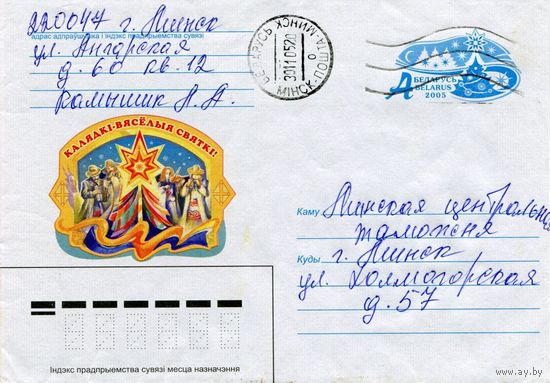 220047 г. Минск
адрас адпраўшчыка і індэкс прадпрыемства сувязі
ул. Ангарская
д. 60 кв. 12
Камышик А. А.
БЕЛАРУСЬ МІНСК ПОШТА МІНСК
301105 20
А БЕЛАРУСЬ
BELARUS
2005
КАЛЯДКІ-ВЯСЁЛЫЯ СВЯТКІ!
Каму Минская центральная
таможня
Куды г. Минск
ул. Холмогорская
д. 57
Індэкс прадпрыемства сувязі месца назначэння
www.ay.by